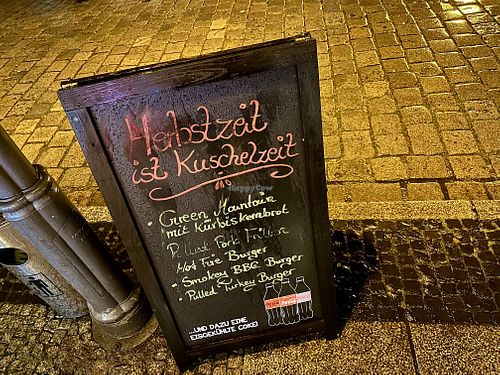 Herbstzeit
ist Kuschelzeit
• Green Mountain
mit Kürbiskernbrot
Pulled Pork
Hot Fire Burger
• Smokey BBQ Burger
• Pulled Turkey Burger
...UND DAZU EINE
EISGEKÜHLTE COKE!
HappyCow